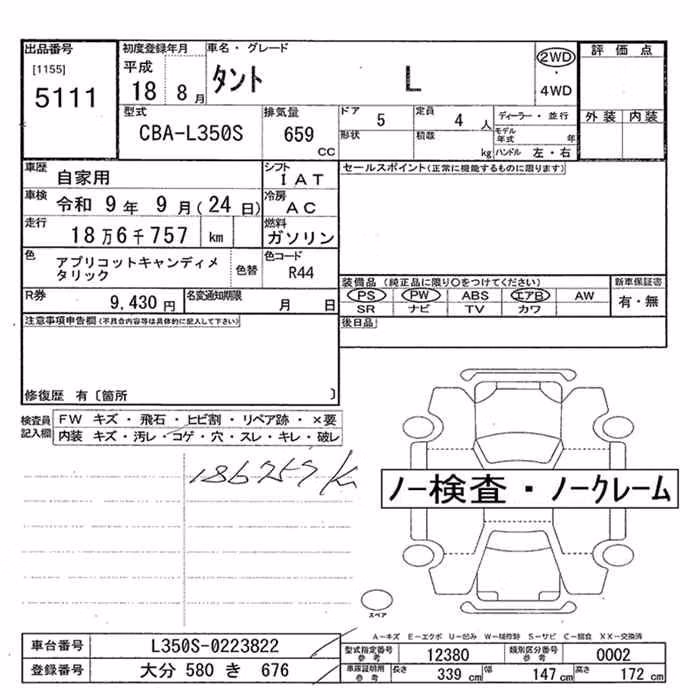 出品番号 初度登録年月 車名・グレード 評価点
[1155] 平成 タント L 2WD
5111 18 8月 ・ 4WD
型式 排気量 ドア 5 定員 4人 ディーラー・並行 外装 内装
CBA-L350S 659 cc 形状 積載 kg モデル年式 年
ハンドル 左・右
車歴 自家用 シフト IAT セールスポイント(正常に機能するものに限ります)
車検 令和 9年 9月(24日) 冷房 AC
走行 18万6千757 km 燃料 ガソリン
色 アプリコットキャンディメタリック 色替 色コード R44
装備品 (純正品に限り○をつけてください) 新車保証書
R券 9,430円 名変通知期限 月 日 PS PW ABS エアB AW 有・無
SR ナビ TV カワ
注意事項申告欄(不具合内容等は具体的に記入して下さい) 後日品
修復歴 有〔箇所 〕
検査員記入欄 FW キズ・飛石・ヒビ割・リペア跡・×要
内装 キズ・汚レ・コゲ・穴・スレ・キレ・破レ
186757K
ノー検査・ノークレーム
スペア
A-キズ E-エクボ U-凹み W-補修跡 S-サビ C-腐食 XX-交換済
車台番号 L350S-0223822 型式指定番号 参考 12380 類別区分番号 参考 0002
登録番号 大分 580 き 676 車庫証明用 参考 長さ 339 cm 幅 147 cm 高さ 172 cm